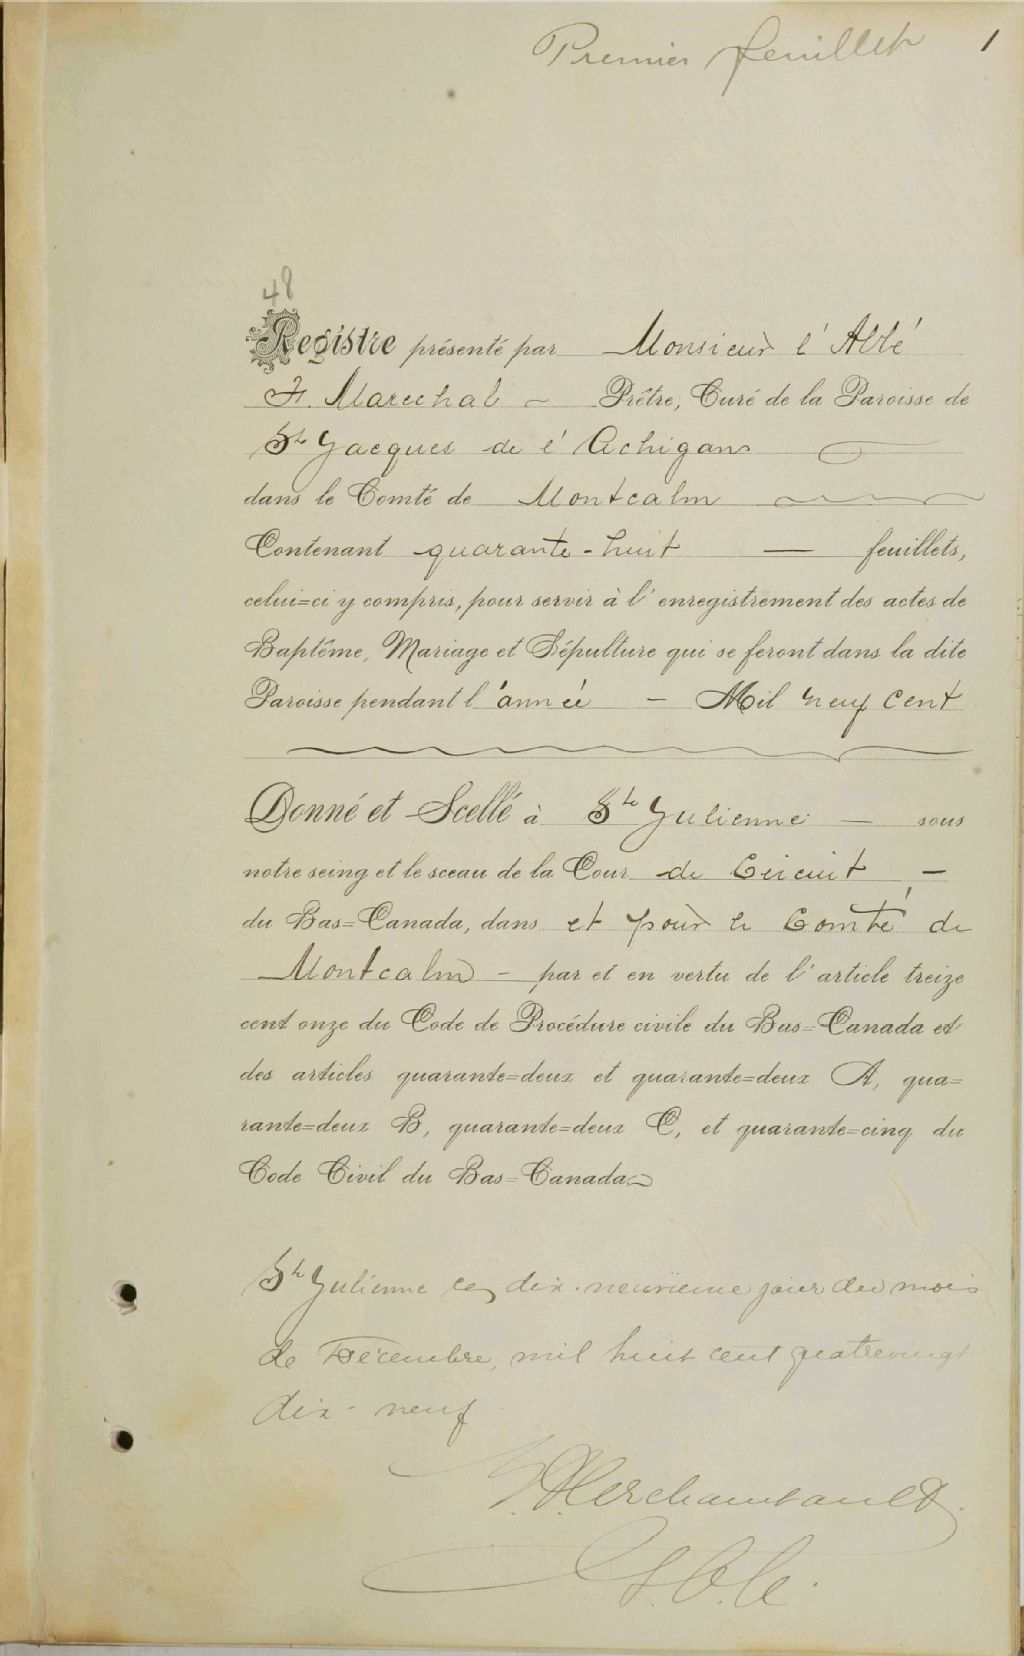 Premier feuillet 1
48
Registre présenté par Monsieur l'Abbé
F. Marechal - Prêtre, Curé de la Paroisse de
St Jacques de l'Achigan
dans le Comté de Montcalm
Contenant quarante-huit — feuillets,
celui=ci y compris, pour servir à l'enregistrement des actes de
Baptême, Mariage et Sépulture qui se feront dans la dite
Paroisse pendant l'année - Mil neuf cent
Donné et Scellé à Ste Julienne — sous
notre seing et le sceau de la Cour de Circuit -
du Bas=Canada, dans et pour le Comté de
Montcalm - par et en vertu de l'article treize
cent onze du Code de Procédure civile du Bas=Canada et
des articles quarante=deux et quarante=deux A, qua=
rante=deux B, quarante=deux C, et quarante=cinq du
Code Civil du Bas=Canada.
Ste Julienne ce dix-neuvieme jour du mois
de Décembre, mil huit cent quatrevingt
dix-neuf